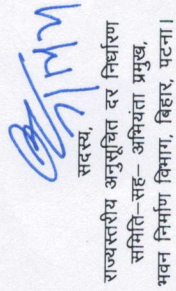 सदस्य,
राज्यस्तरीय अनुसूचित दर निर्धारण
समिति–सह– अभियंता प्रमुख,
भवन निर्माण विभाग, बिहार, पटना।